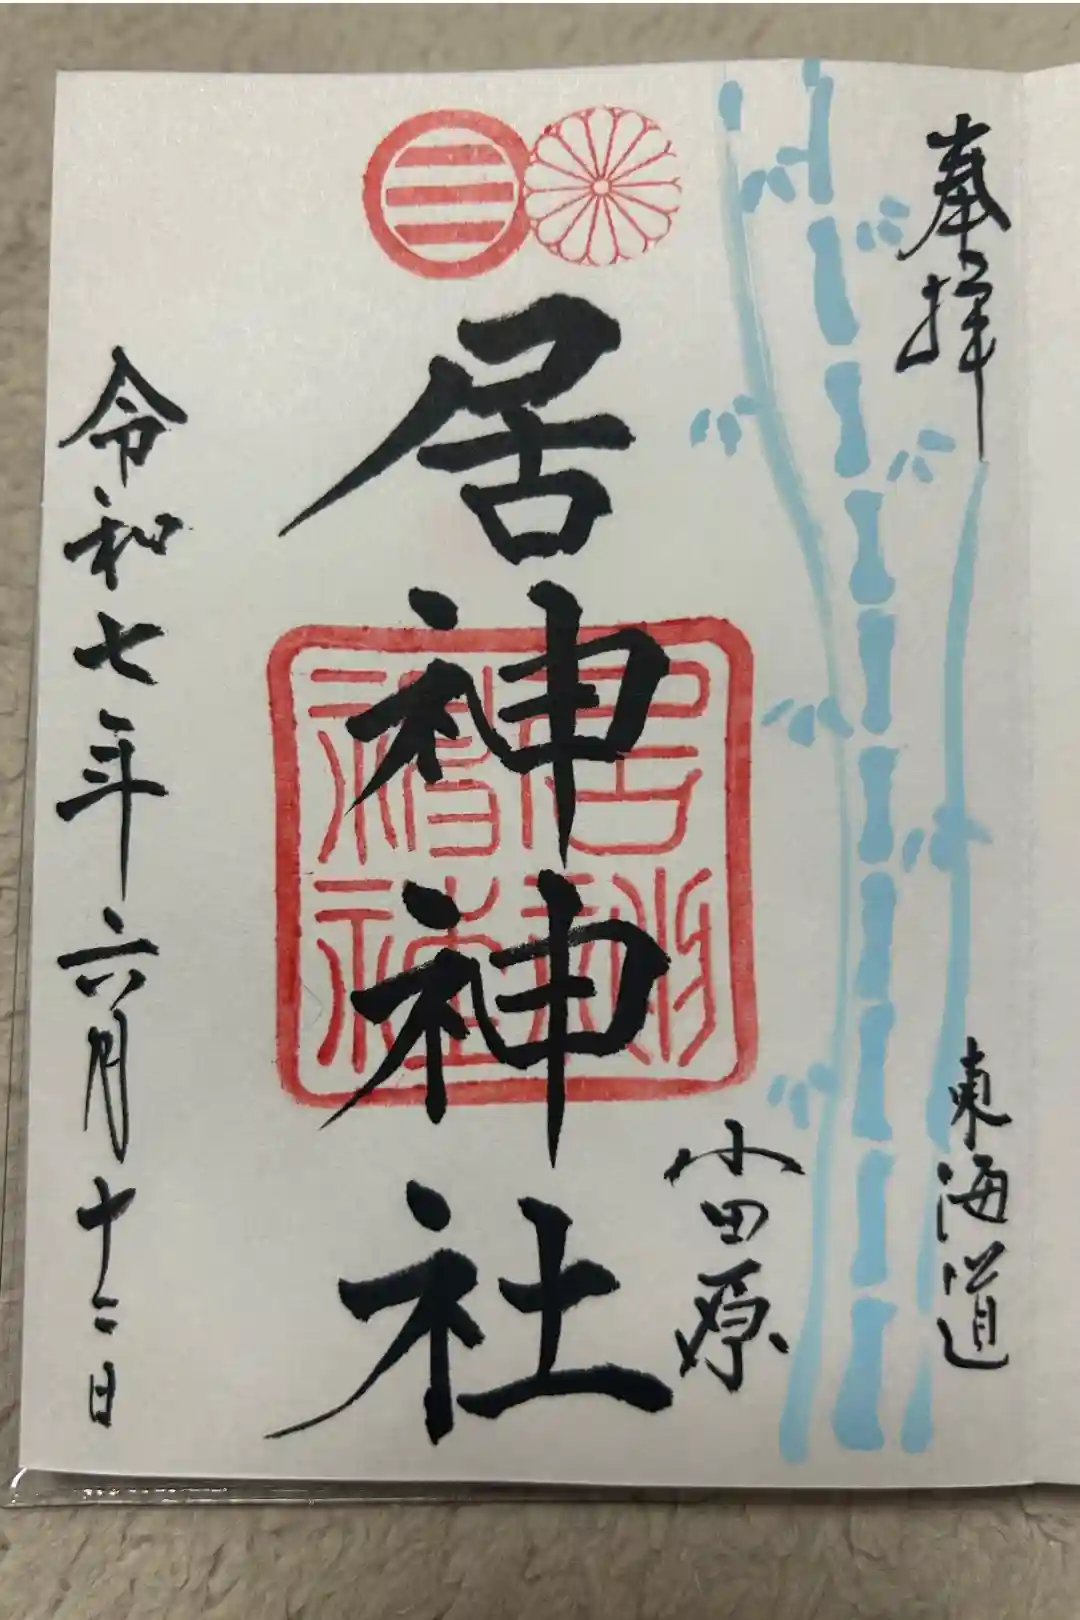 奉拝
東海道
小田原
居神神社
令和七年六月十二日